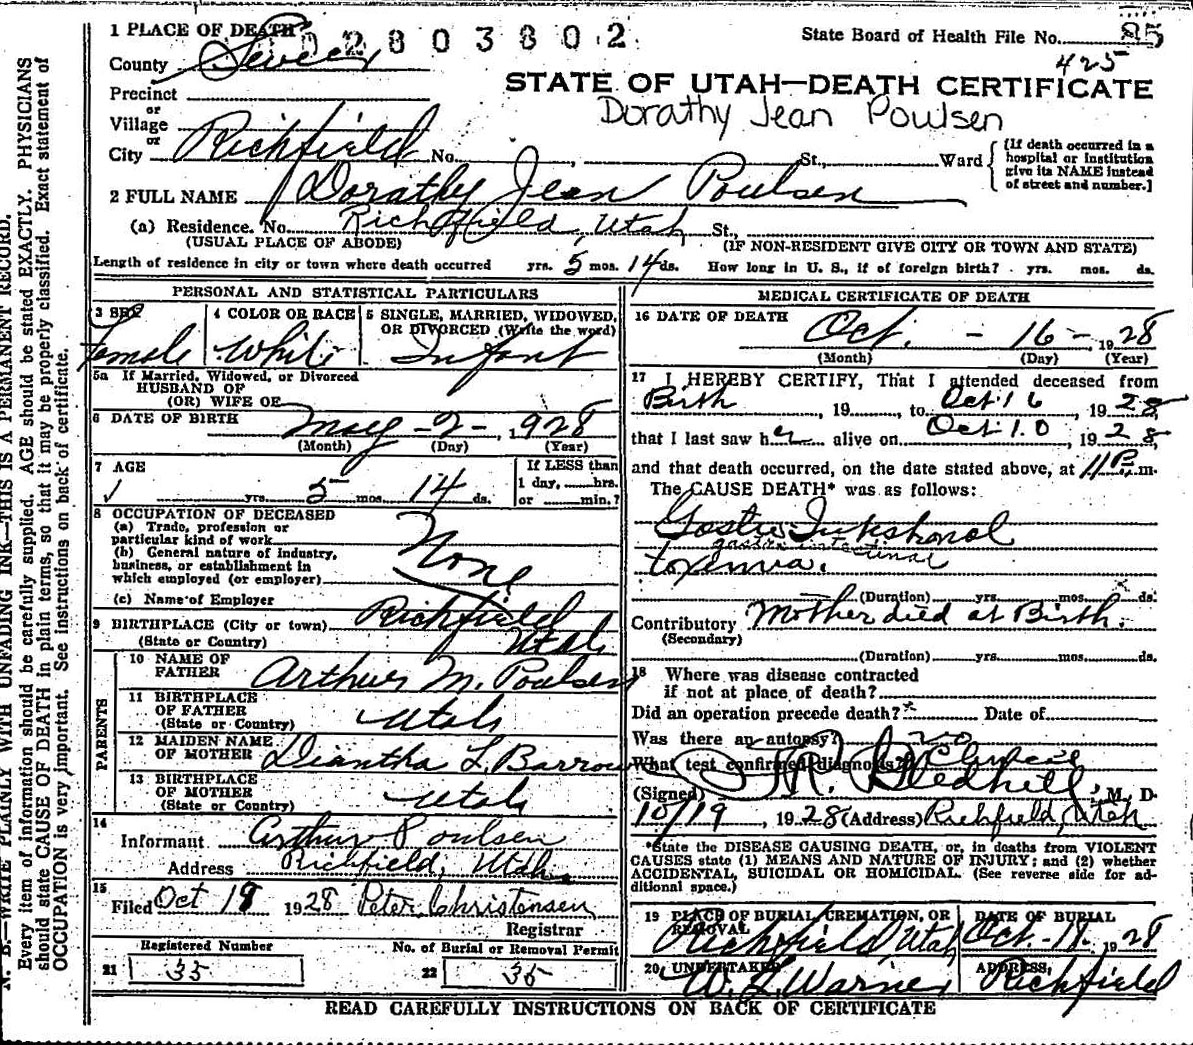 1 PLACE OF DEATH
02803802
State Board of Health File No. 85
425
County Sevier
STATE OF UTAH—DEATH CERTIFICATE
Precinct
Dorathy Jean Poulsen
or
Village
or
City Richfield No. , St., Ward
[If death occurred in a
hospital or institution
give its NAME instead
of street and number.]
2 FULL NAME Dorathy Jean Poulsen
(a) Residence. No. Richfield, Utah St.,
(USUAL PLACE OF ABODE) (IF NON-RESIDENT GIVE CITY OR TOWN AND STATE)
Length of residence in city or town where death occurred yrs. 5 mos. 14 ds. How long in U. S., if of foreign birth? yrs. mos. ds.
PERSONAL AND STATISTICAL PARTICULARS
3 SEX 4 COLOR OR RACE 5 SINGLE, MARRIED, WIDOWED,
OR DIVORCED (Write the word)
Female White Infant
5a If Married, Widowed, or Divorced
HUSBAND OF
(OR) WIFE OF
6 DATE OF BIRTH May - 2 - , 1928
(Month) (Day) (Year)
7 AGE
yrs. 5 mos. 14 ds.
If LESS than
1 day, hrs.
or min.?
8 OCCUPATION OF DECEASED
(a) Trade, profession or
particular kind of work
(b) General nature of industry,
business, or establishment in
which employed (or employer)
None
(c) Name of Employer
9 BIRTHPLACE (City or town) Richfield
(State or Country) Utah
PARENTS
10 NAME OF
FATHER Arthur M. Poulsen
11 BIRTHPLACE
OF FATHER
(State or Country) Utah
12 MAIDEN NAME
OF MOTHER Diantha L. Barrow
13 BIRTHPLACE
OF MOTHER
(State or Country) Utah
14
Informant Arthur Poulsen
Address Richfield, Utah
15
Filed Oct 19 1928 Peter Christensen
Registrar
Registered Number No. of Burial or Removal Permit
21 35 22 35
MEDICAL CERTIFICATE OF DEATH
16 DATE OF DEATH Oct. - 16 - , 1928
(Month) (Day) (Year)
17 I HEREBY CERTIFY, That I attended deceased from
Birth , 19 , to Oct 16 , 1928,
that I last saw her alive on Oct. 10 , 1928,
and that death occurred, on the date stated above, at 11 P. m.
The CAUSE DEATH* was as follows:
Gastro Intestinal
gastro intestinal
toxemia.
(Duration) yrs. mos. ds.
Contributory Mother died at Birth.
(Secondary)
(Duration) yrs. mos. ds.
18 Where was disease contracted
if not at place of death?
Did an operation precede death? x Date of
Was there an autopsy? no
What test confirmed diagnosis? Clinical
(Signed) Gledhill, M. D.
10/19 , 1928 (Address) Richfield, Utah
*State the DISEASE CAUSING DEATH, or, in deaths from VIOLENT
CAUSES state (1) MEANS AND NATURE OF INJURY; and (2) whether
ACCIDENTAL, SUICIDAL OR HOMICIDAL. (See reverse side for ad-
ditional space.)
19 PLACE OF BURIAL, CREMATION, OR
REMOVAL
Richfield Utah
DATE OF BURIAL
Oct - 18. 1928
20 UNDERTAKER
W. L. Warner
ADDRESS,
Richfield
READ CAREFULLY INSTRUCTIONS ON BACK OF CERTIFICATE
N. B.—WRITE PLAINLY WITH UNFADING INK—THIS IS A PERMANENT RECORD.
Every item of information should be carefully supplied. AGE should be stated EXACTLY. PHYSICIANS
should state CAUSE OF DEATH in plain terms, so that it may be properly classified. Exact statement of
OCCUPATION is very important. See instructions on back of certificate.